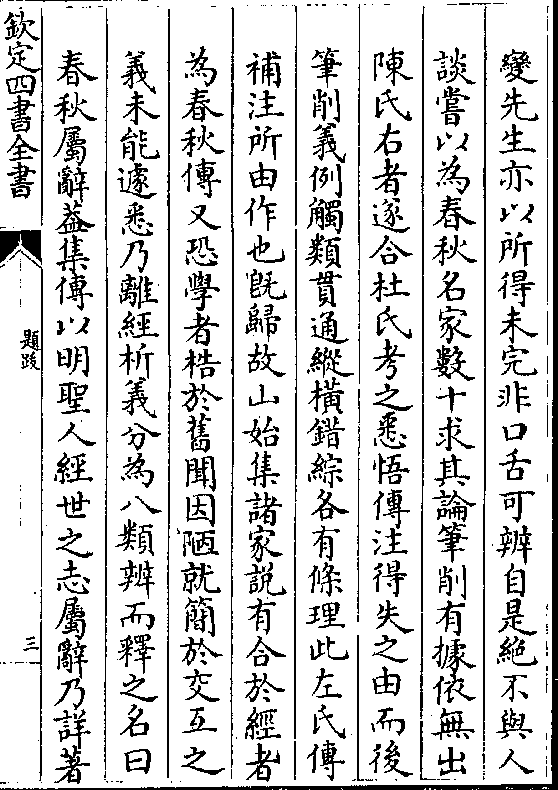 變先生亦以所得未完非口舌可辨自是絕不與人
談嘗以為春秋名家數十求其論筆削有據依無出
陳氏右者遂合杜氏考之悉悟傳注得失之由而後
筆削義例觸類貫通縱橫錯綜各有條理此左氏傳
補注所由作也既歸故山始集諸家説有合於經者
為春秋傳又恐學者梏於舊聞因陋就簡於交互之
義未能遽悉乃離經析義分為八類辨而釋之名曰
春秋屬辭葢集傳以明聖人經世之志屬辭乃詳著
欽定四書全書
題跋
三